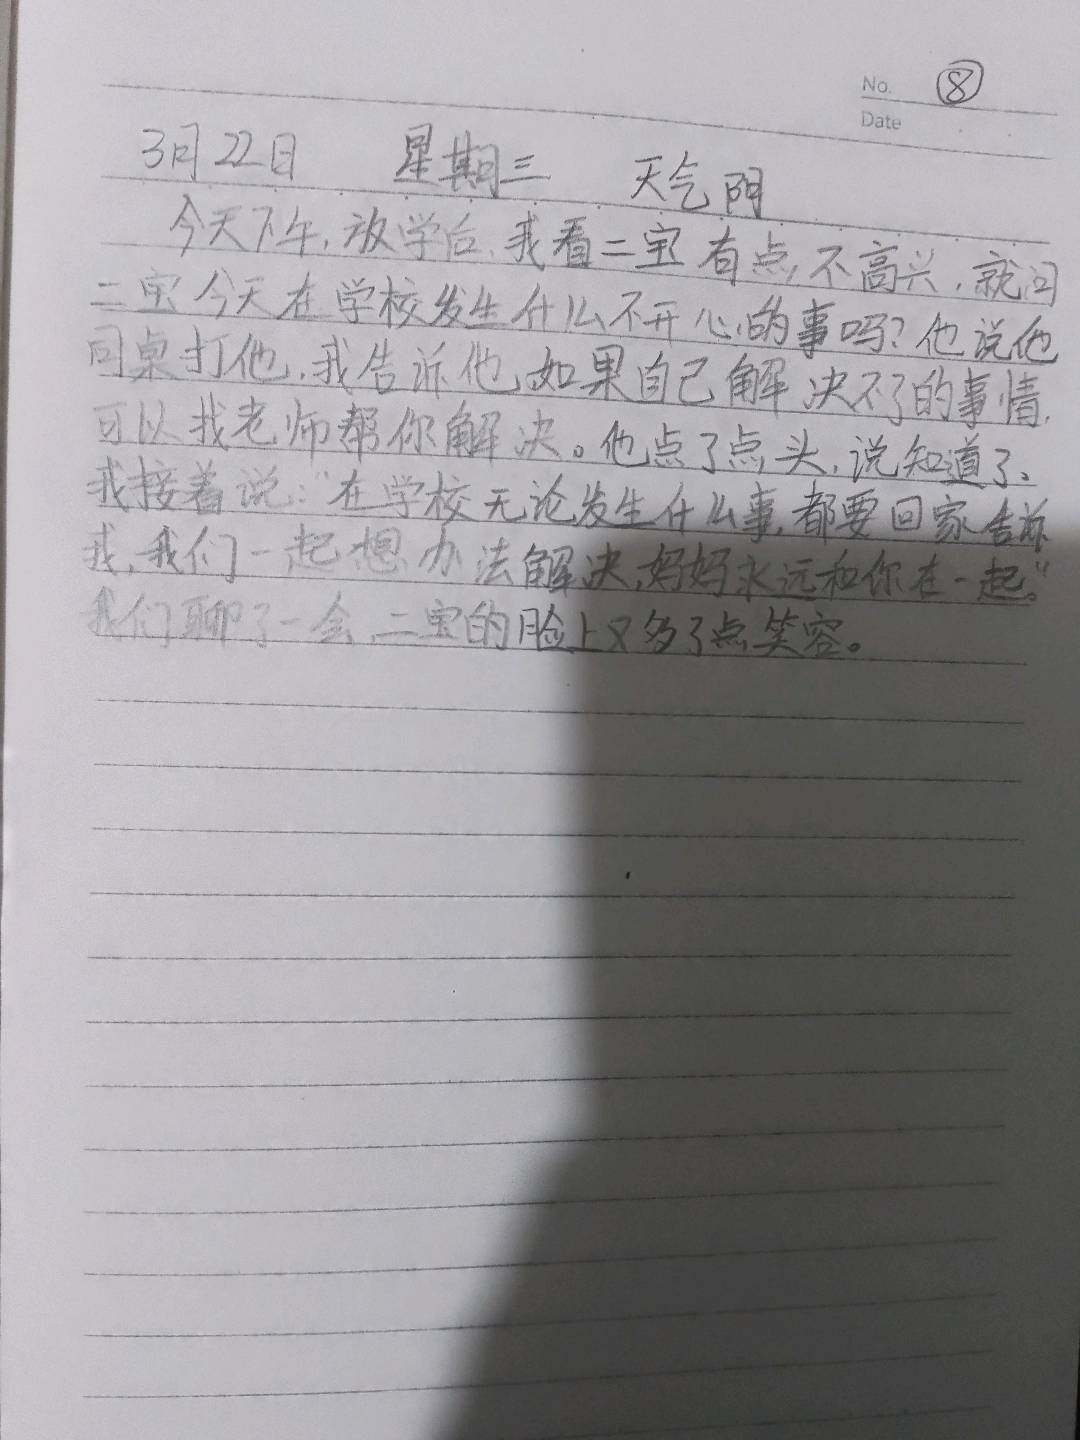 No. ⑧
Date
3月22日 星期三 天气阴
今天下午,放学后,我看二宝有点不高兴,就问
二宝今天在学校发生什么不开心的事吗?他说他
同桌打他,我告诉他,如果自己解决不了的事情,
可以找老师帮你解决。他点了点头,说知道了、
我接着说:“在学校无论发生什么事,都要回家告诉
我,我们一起想办法解决,妈妈永远和你在一起。”
我们聊了一会,二宝的脸上又多了点笑容。